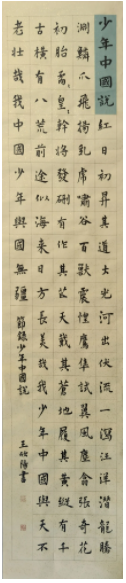 少年中國説紅日初昇其道大光河出伏流一瀉汪洋潛龍騰
淵鱗爪飛揚乳虎嘯谷百獸震惶鷹隼試翼風塵翕張奇花
初胎矞〻皇〻幹將發硎有作其芒天戴其蒼地履其黃縱有千
古橫有八荒前途似海來日方長美哉我少年中國與天不
老壯哉我中國少年與國無疆 節錄少年中國説
王 書